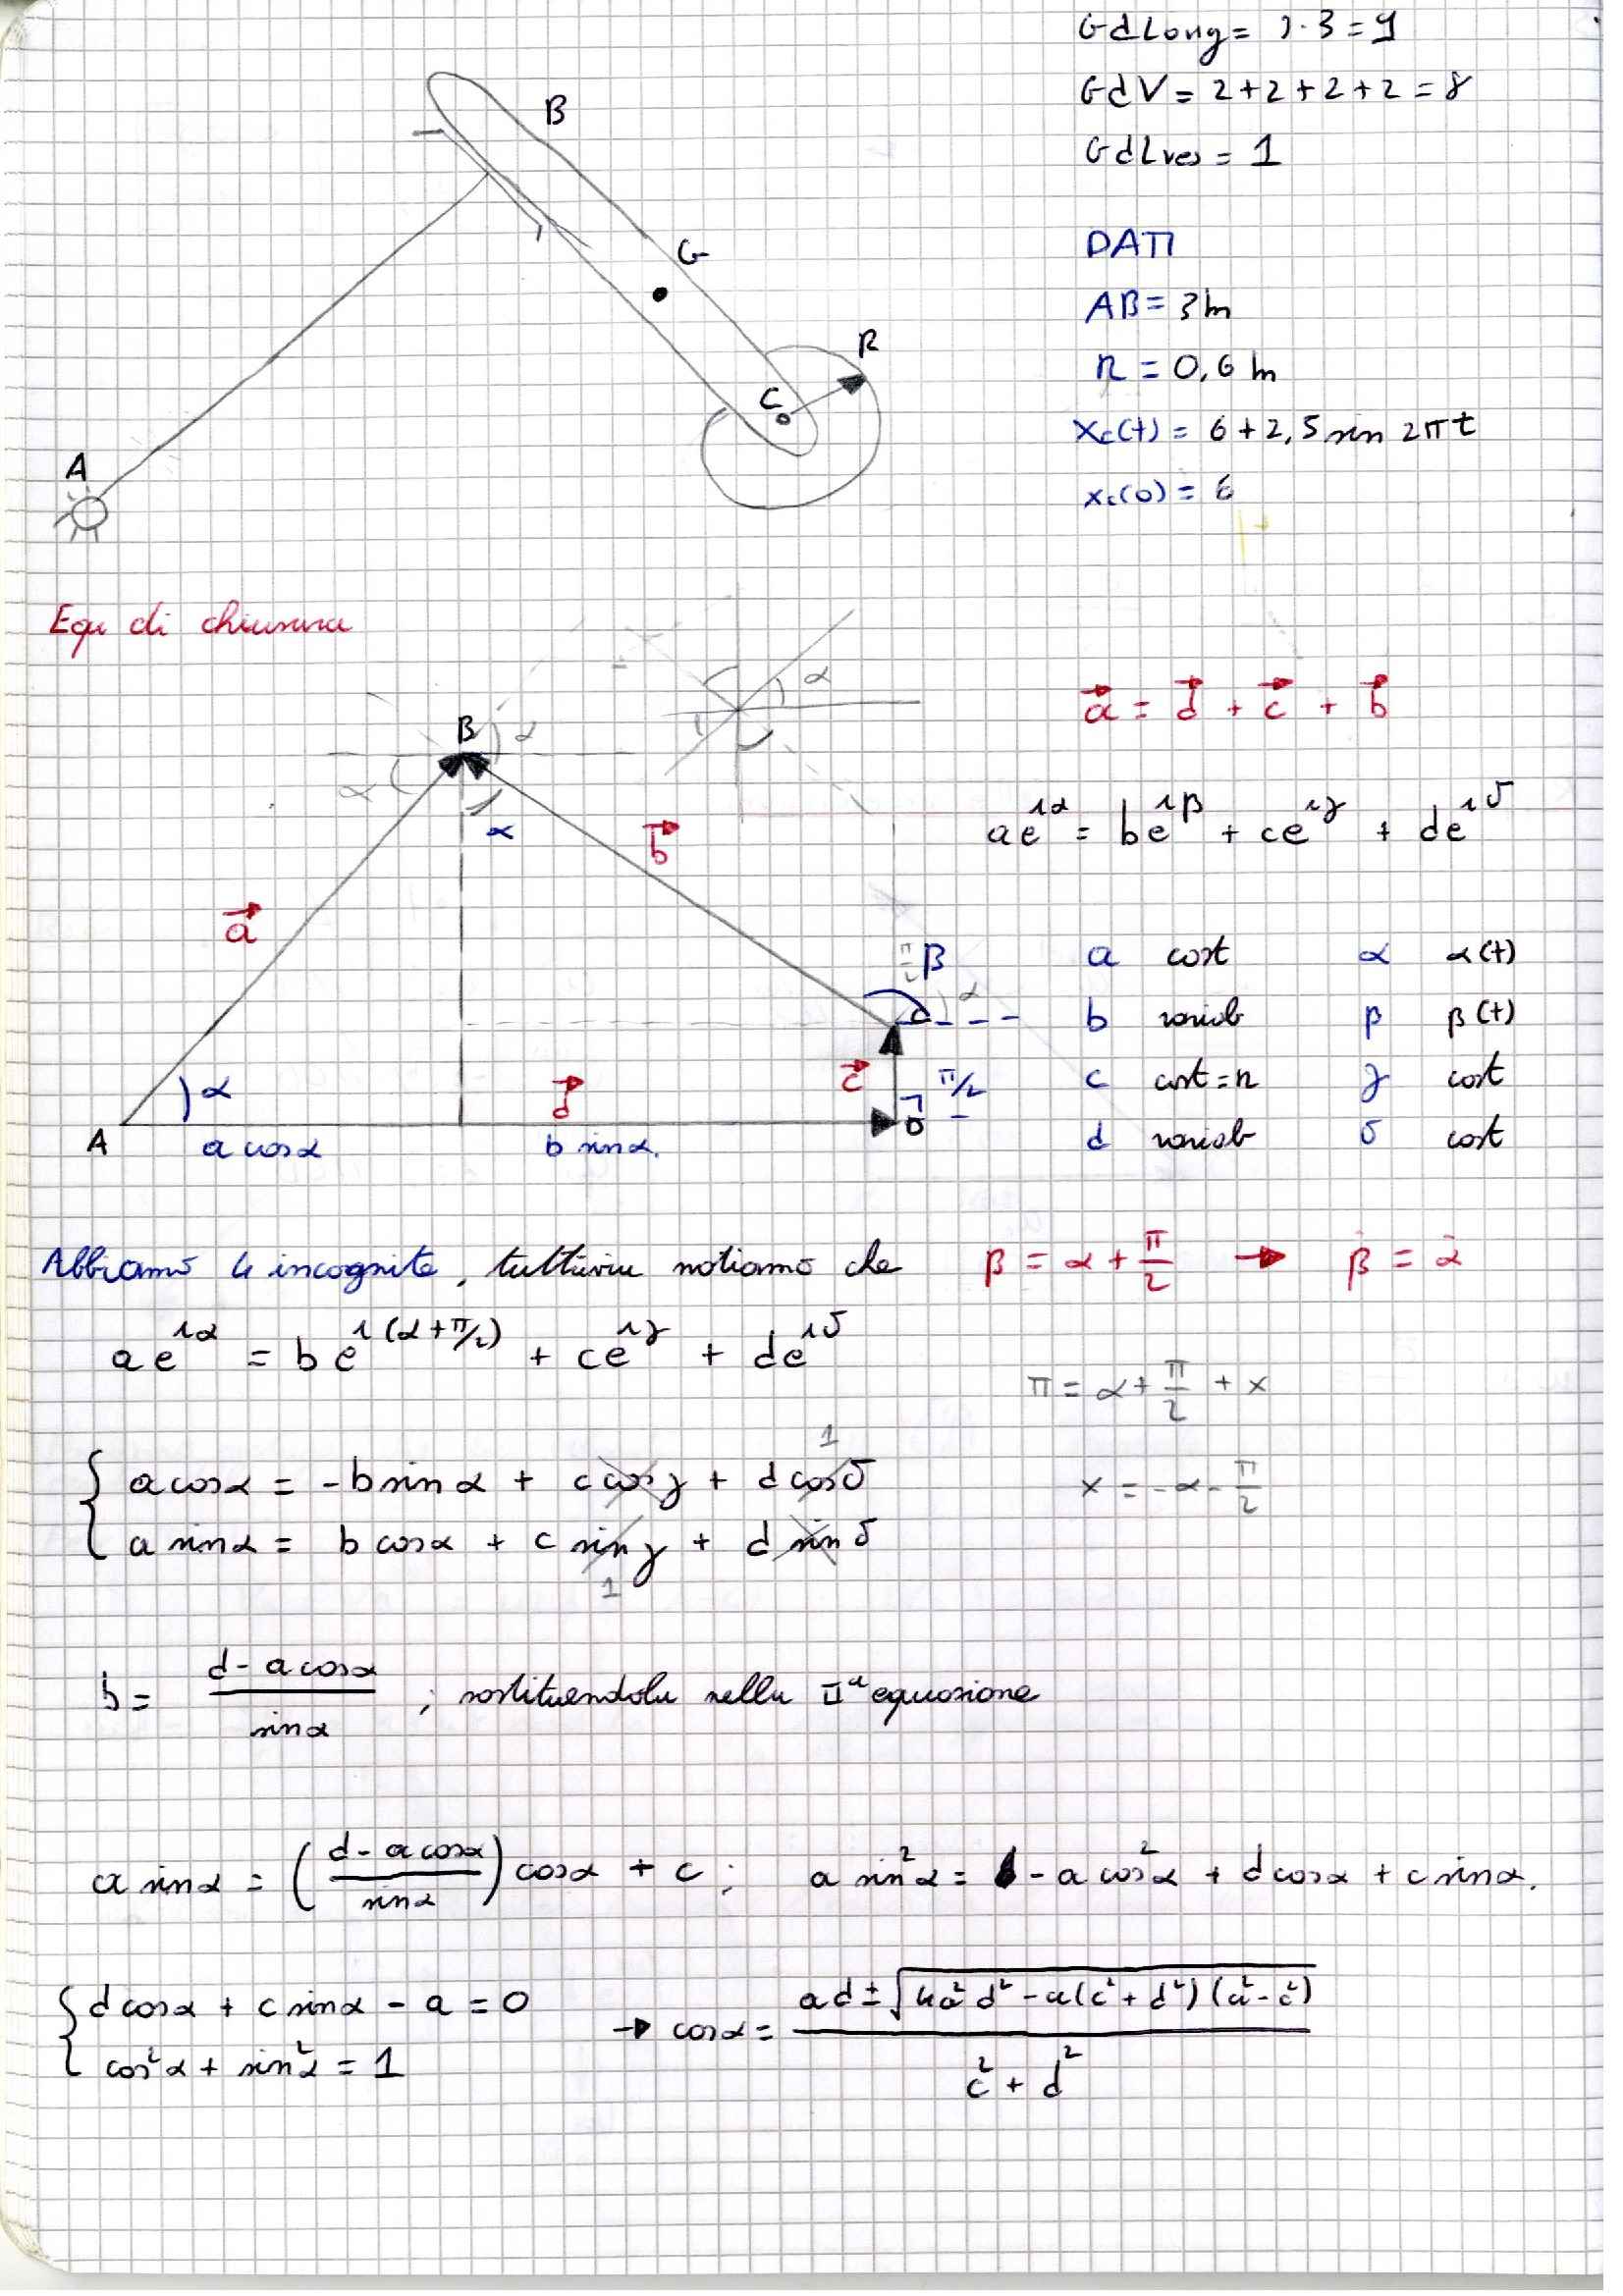 GdLong = 3·3 = 9
GdV = 2+2+2+2 = 8
GdLres = 1
B
G
R
C
A
DATI
AB = 3m
R = 0,6 m
xc(t) = 6 + 2,5 sin 2πt
xc(0) = 6
Equ di chiusura
a⃗ = d⃗ + c⃗ + b⃗
α
B
α
α
α
b⃗
a e^{iα} = b e^{iβ} + c e^{iγ} + d e^{iδ}
a⃗
π/2
β
α
a cost α α(t)
b variab β β(t)
c cost = r γ cost
d variab δ cost
c⃗
π/2
α
d⃗
δ
A
a cosα
b sinα.
Abbiamo 4 incognite, tuttavia notiamo che β = α + π/2 → β̇ = α̇
a e^{iα} = b e^{i(α+π/2)} + c e^{iγ} + d e^{iδ}
π = α + π/2 + x
1
{ a cosα = -b sinα + c cosγ + d cosδ
x = -α - π/2
a sinα = b cosα + c sinγ + d sinδ
1
b = (d - a cosα)/sinα ; sostituendola nella IIª equazione
a sinα = ((d - a cosα)/sinα) cosα + c ; a sin²α = - a cos²α + d cosα + c sinα.
{ d cosα + c sinα - a = 0
cos²α + sin²α = 1
→ cosα = (ad ± √(4a²d² - 4(c² + d²)(a² - c²)))/(c² + d²)